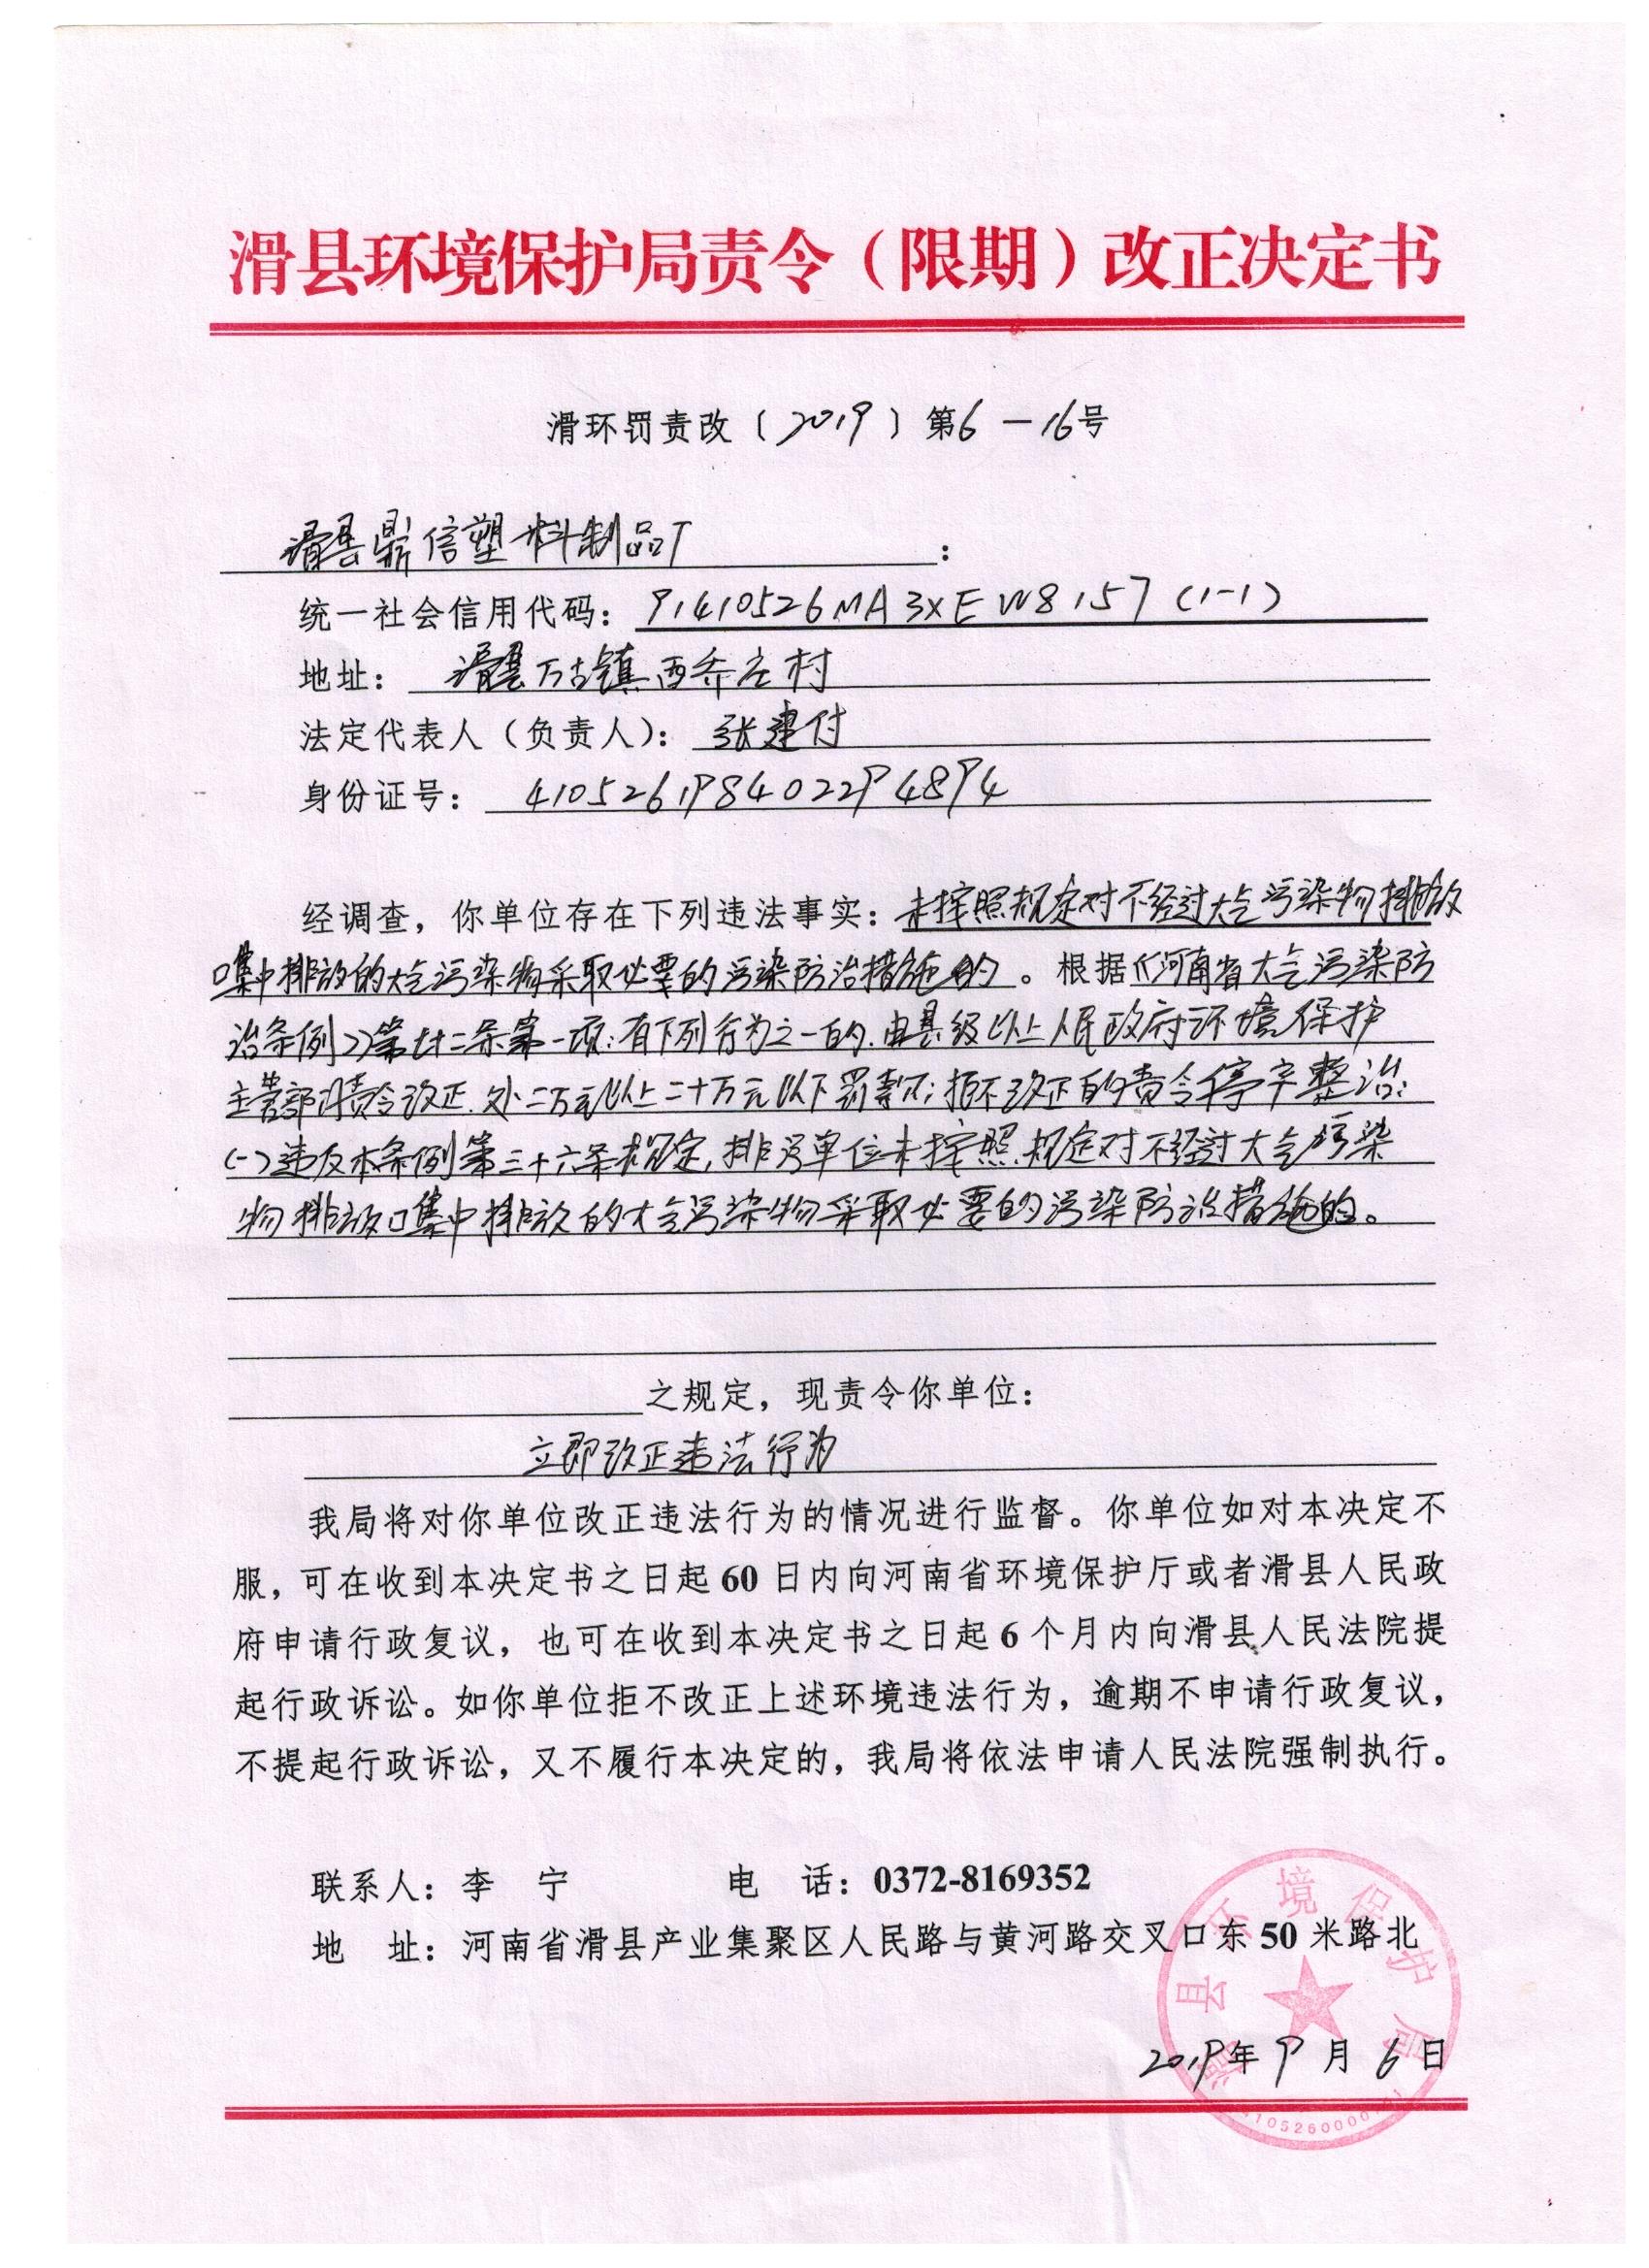 滑县环境保护局责令（限期）改正决定书
滑环罚责改〔2019〕第6-16号
滑县鼎信塑料制品厂：
统一社会信用代码：91410526MA3XEW8157(1-1)
地址：滑县万古镇西乔庄村
法定代表人（负责人）：张建付
身份证号：410526198402294894
经调查，你单位存在下列违法事实：未按照规定对不经过大气污染物排放
口集中排放的大气污染物采取必要的污染防治措施的。根据《河南省大气污染防
治条例》第七十二条第一项：有下列行为之一的.由县级以上人民政府环境保护
主管部门责令改正.处二万元以上二十万元以下罚款；拒不改正的责令停产整治：
(一)违反本条例第三十六条规定,排污单位未按照规定对不经过大气污染
物排放口集中排放的大气污染物采取必要的污染防治措施的。
之规定，现责令你单位：
立即改正违法行为
我局将对你单位改正违法行为的情况进行监督。你单位如对本决定不
服，可在收到本决定书之日起60日内向河南省环境保护厅或者滑县人民政
府申请行政复议，也可在收到本决定书之日起6个月内向滑县人民法院提
起行政诉讼。如你单位拒不改正上述环境违法行为，逾期不申请行政复议，
不提起行政诉讼，又不履行本决定的，我局将依法申请人民法院强制执行。
联系人：李 宁 电 话：0372-8169352
地 址：河南省滑县产业集聚区人民路与黄河路交叉口东50米路北
滑县环境保护局
2019年9月6日